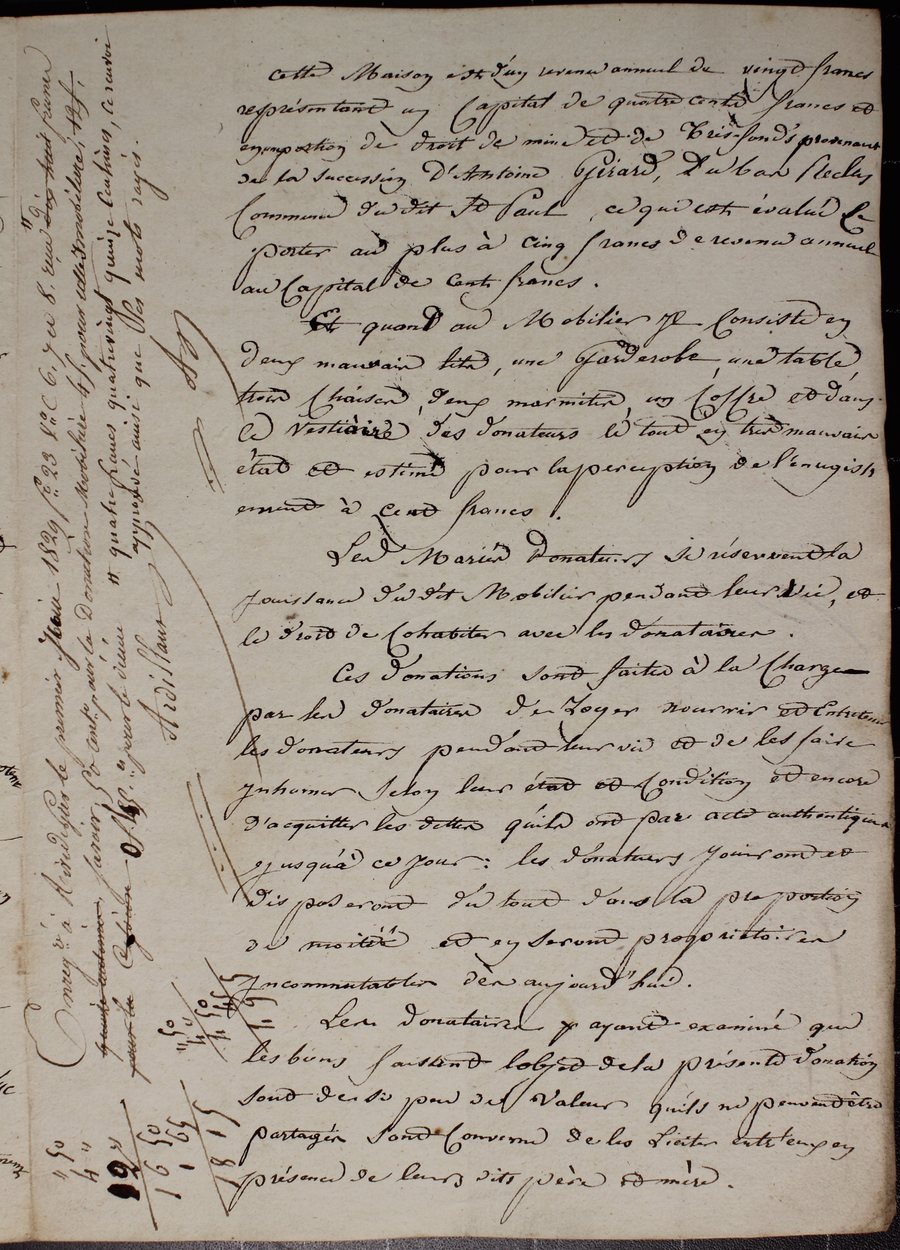 cette Maison est d'un revenu annuel de vingt francs
représentant un Capital de quatre cents francs et
en portion de droit de mine et de Très-fonds provenant
de la succession D'Antoine Girard, Du
Commune du dit St Paul, ce qui est évalué Le
porter au plus à Cinq francs de revenu annuel
au Capital de Cent francs.
Et quand au Mobilier Il Consiste en
deux mauvais lits, une Garderobe, une table,
trois Chaises, deux marmites, un Coffre et dans
le Vestiaire des donateurs le tout en très mauvais
état et estimé pour la perception de l'enregistr
ement à Cent francs.
Les Mariés Donateurs se réservent la
jouissance du dit Mobilier pendant leur vie, et
le droit de Cohabiter avec les donataires.
Ces donations sont faites à la Charge
par les donataires de Loger nourrir et Entretenir
les donateurs pendant leur vie et de les faire
inhumer selon leur état et Condition et encore
d'acquitter les dettes qu'ils ont par acte authentique
jusqu'à ce jour: les donateurs jouiront et
disposeront du tout dans la proportion
de moitié et en seront propriétaires
Incommutables dès aujourd'hui.
Les donataires y ayant examiné que
les biens faisant l'objet de la présente donation
sont de si peu de Valeur qu'ils ne peuvent être
partagés sont Convenu de les Liciter entr'eux en
présence de leurs dits père et mère.
Enreg.ré à St Rambert le premier 1829 f° 23 V° C. 6. 7 et 8. reçu dix huit francs
pour la Donation Mobilière 4f pour celle immobilière,
pour le dixième
" quatre francs quatrevingt quinze Centimes, ce renvoi
approuvé ainsi que les mots rayés.
Ardillaux
" 50
4 "
12 "
16 50
1 65
18 15
" 50
4 "
4 50
45
4 95